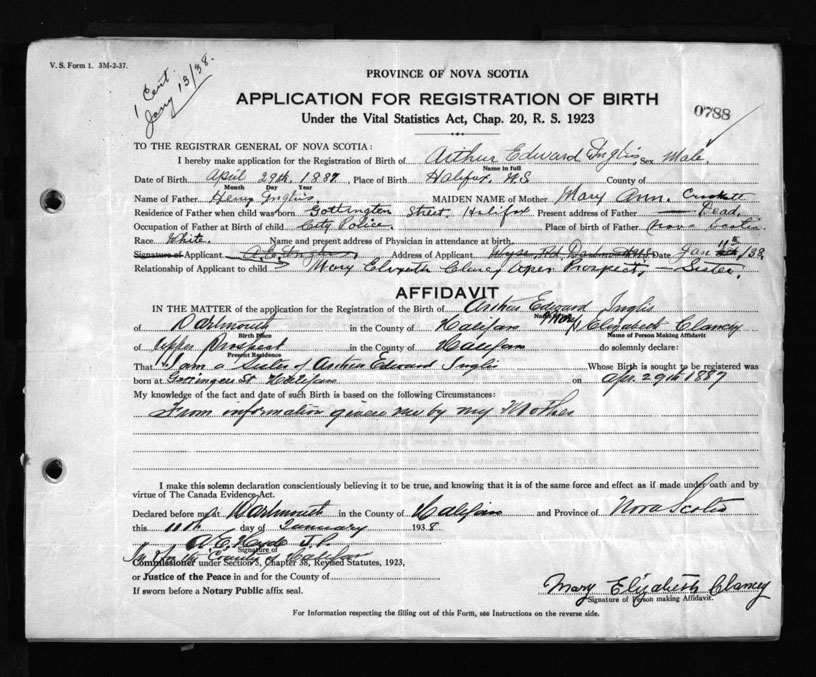 V. S. Form 1. 3M-2-37.
1 Cent.
Jany 13/38.
PROVINCE OF NOVA SCOTIA
APPLICATION FOR REGISTRATION OF BIRTH
0788
Under the Vital Statistics Act, Chap. 20, R. S. 1923
TO THE REGISTRAR GENERAL OF NOVA SCOTIA:
I hereby make application for the Registration of Birth of Arthur Edward Inglis Sex Male
Name in full
Date of Birth April 29th. 1887, Place of Birth Halifax. N.S County of
Month Day Year
Name of Father Henry Inglis. MAIDEN NAME of Mother Mary Ann. Crockett
Residence of Father when child was born Gottington Street, Halifax Present address of Father — Dead.
Occupation of Father at Birth of child City Police. Place of birth of Father Nova Scotia.
Race White. Name and present address of Physician in attendance at birth.
Signature of Applicant A.E. Inglis Address of Applicant Wyse Rd, Dartmouth N.S. Date Jan 11th /38.
Relationship of Applicant to child Mary Elizabeth Clancy Upper Prospect. — Sister.
AFFIDAVIT
IN THE MATTER of the application for the Registration of the Birth of Arthur Edward Inglis
Name
of Dartmouth in the County of Halifax I, Mary Elizabeth Clancy
Birth Place Name of Person Making Affidavit
of Upper Prospect in the County of Halifax do solemnly declare:
Present Residence
That I am a Sister of Arthur Edward Inglis Whose Birth is sought to be registered was
born at Gottingen St Halifax on Apr. 29th 1887
My knowledge of the fact and date of such Birth is based on the following Circumstances:
From information given me by my Mother
I make this solemn declaration conscientiously believing it to be true, and knowing that it is of the same force and effect as if made under oath and by
virtue of The Canada Evidence Act.
Declared before me at Dartmouth in the County of Halifax and Province of Nova Scotia
this 11th day of January 1938
A. C. Hyde J.P.
Signature of
In & for the County of Halifax
Commissioner under Section 5, Chapter 38, Revised Statutes, 1923,
or Justice of the Peace in and for the County of
If sworn before a Notary Public affix seal.
Mary Elizabeth Clancy
Signature of Person making Affidavit.
For Information respecting the filling out of this Form, see Instructions on the reverse side.